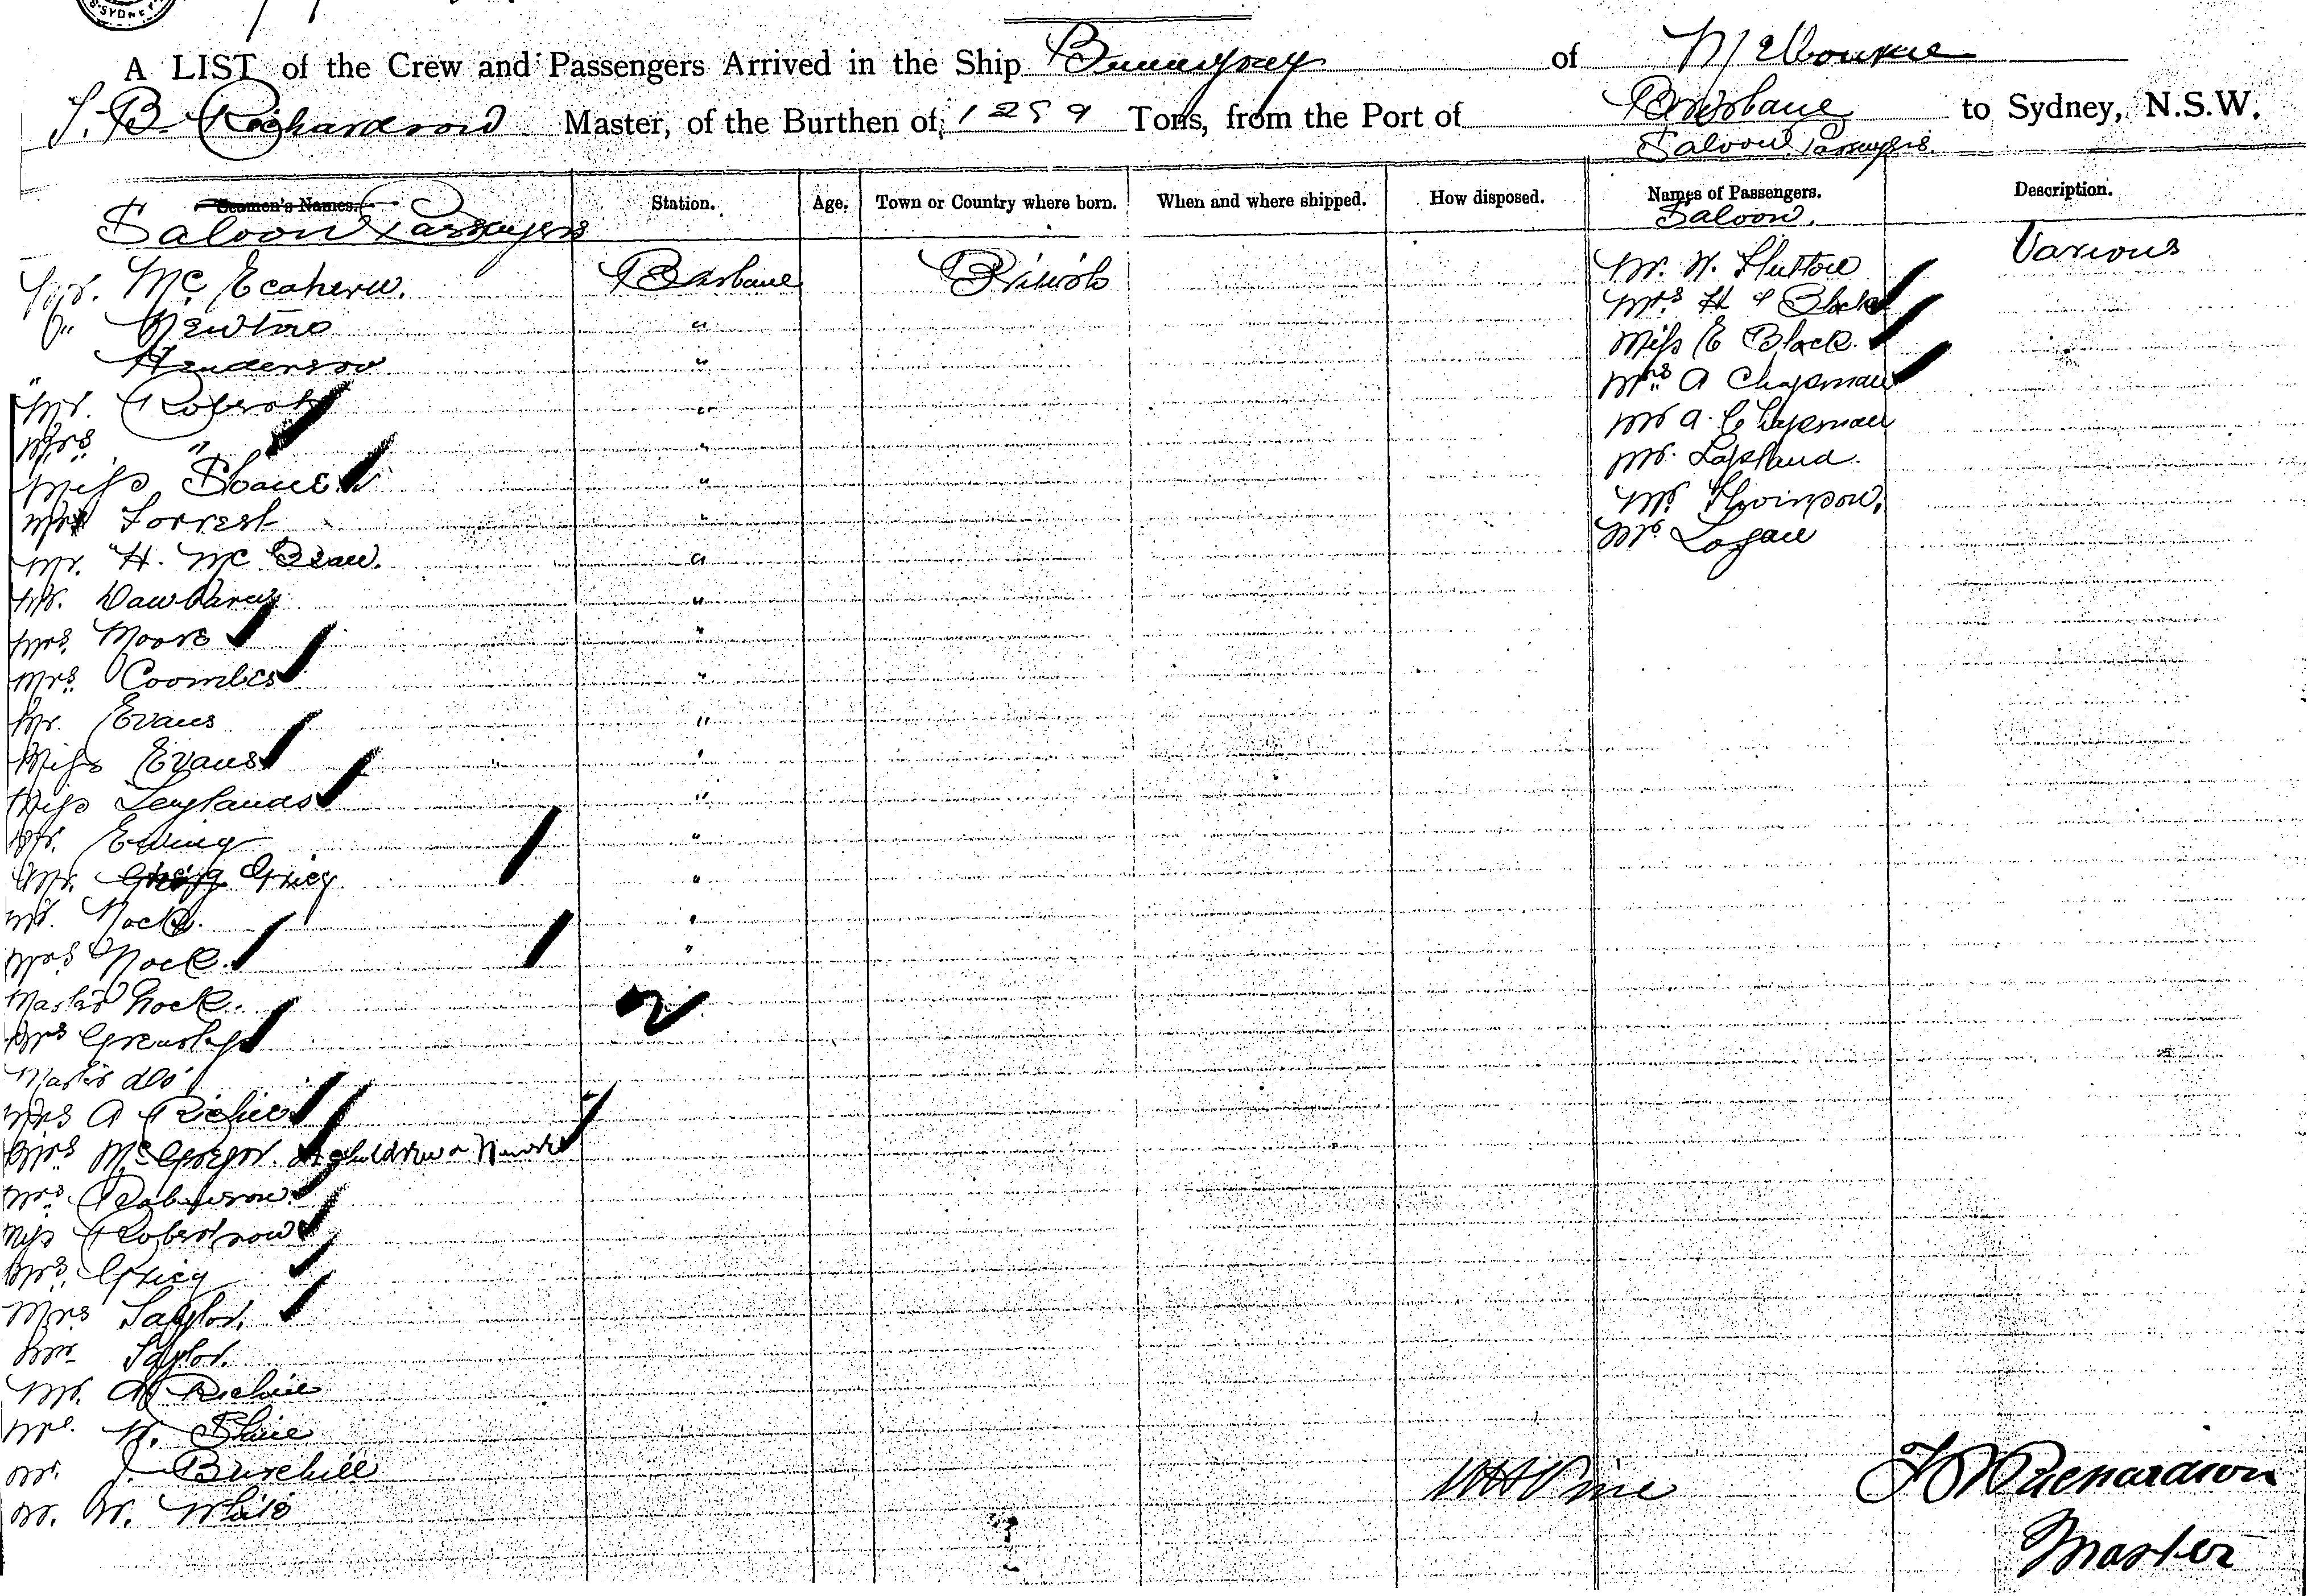 SYDNEY
A LIST of the Crew and Passengers Arrived in the Ship Buninyong of Melbourne
T. B. Richardson Master, of the Burthen of, 1259 Tons, from the Port of Brisbane to Sydney, N.S.W.
Saloon Passengers.
Seamen's Names. Station. Age. Town or Country where born. When and where shipped. How disposed. Names of Passengers. Description.
Saloon Passengers Saloon.
Mc Eachern. Brisbane British Mr. W. Hutton Various
" Newton " Mrs H Black
" Henderson " Miss E Black.
Mr. Roberts " Mrs A Chapman
Mrs " " Mr A. Chapman
Miss Sloane " Mr. Lapland.
Forrest " Mr Thompson.
Mr. H. Mc Bean. " Mr Logan
Mr. Dawbarn "
Mrs Moore "
Mrs Coombes "
Mr. Evans "
Miss Evans "
Miss Leylands "
Mr. Ewing "
Mr. Grieg "
Mr. Nock. "
Mrs Nock. "
Master Nock. 2
Mrs Greenslape
Master do
Mrs A Richie
Mrs McGregor. children & Nurse
Mrs Robinson.
Miss Robertson
Mrs Grieg
Mrs Taylor.
Mr Taylor.
Mr. A Richie
Mr. W. Shie
Mr. J. Burchill
M. W. White
F B Richardson
Master